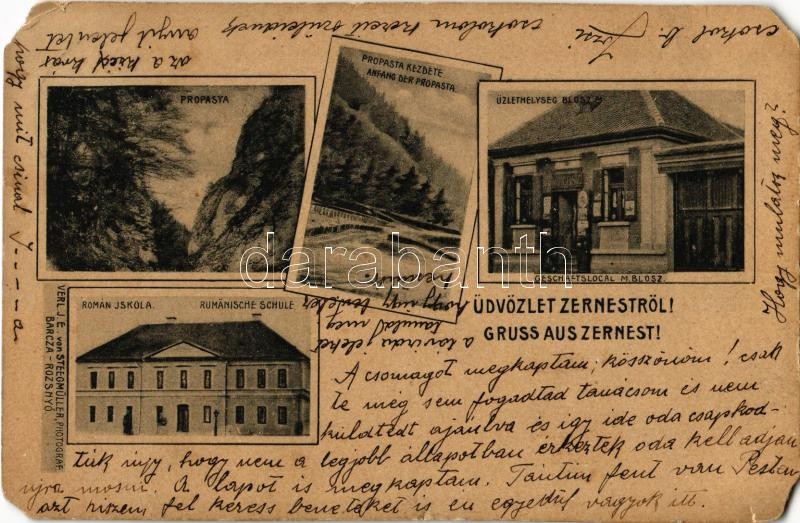 PROPASTA
PROPASTA KEZDETE.
ANFANG DER PROPASTA.
ÜZLETHELYSÉG BLOSZ M.
GESCHÄFTSLOCAL M. BLOSZ.
ROMÁN JSKOLA. RUMÄNISCHE SCHULE
VERL. J. E. von STEEGMÜLLER, PHOTOGRAF
BARCZA-ROZSNYÓ.
ÜDVÖZLET ZERNESTRÖL!
GRUSS AUS ZERNEST!
A csomagot megkaptam, köszönöm! csak
te még sem fogadtad tanácsom és nem
küldtedt ajánlva és így ide oda csapkod-
ták úgy, hogy nem a legjobb állapotban érkeztek oda kell adjam
újra mosni. A lapot is megkaptam. Tantim fent van Pesten
azt hiszem fel keress benneteket is én egyedül vagyok itt.
Hogy mulatsz meg?
csokol b. Izsi
csokolom kezeit szüleidnek
annyit jelentet
az a kieg
hogy mit csinal J----a
darabanth